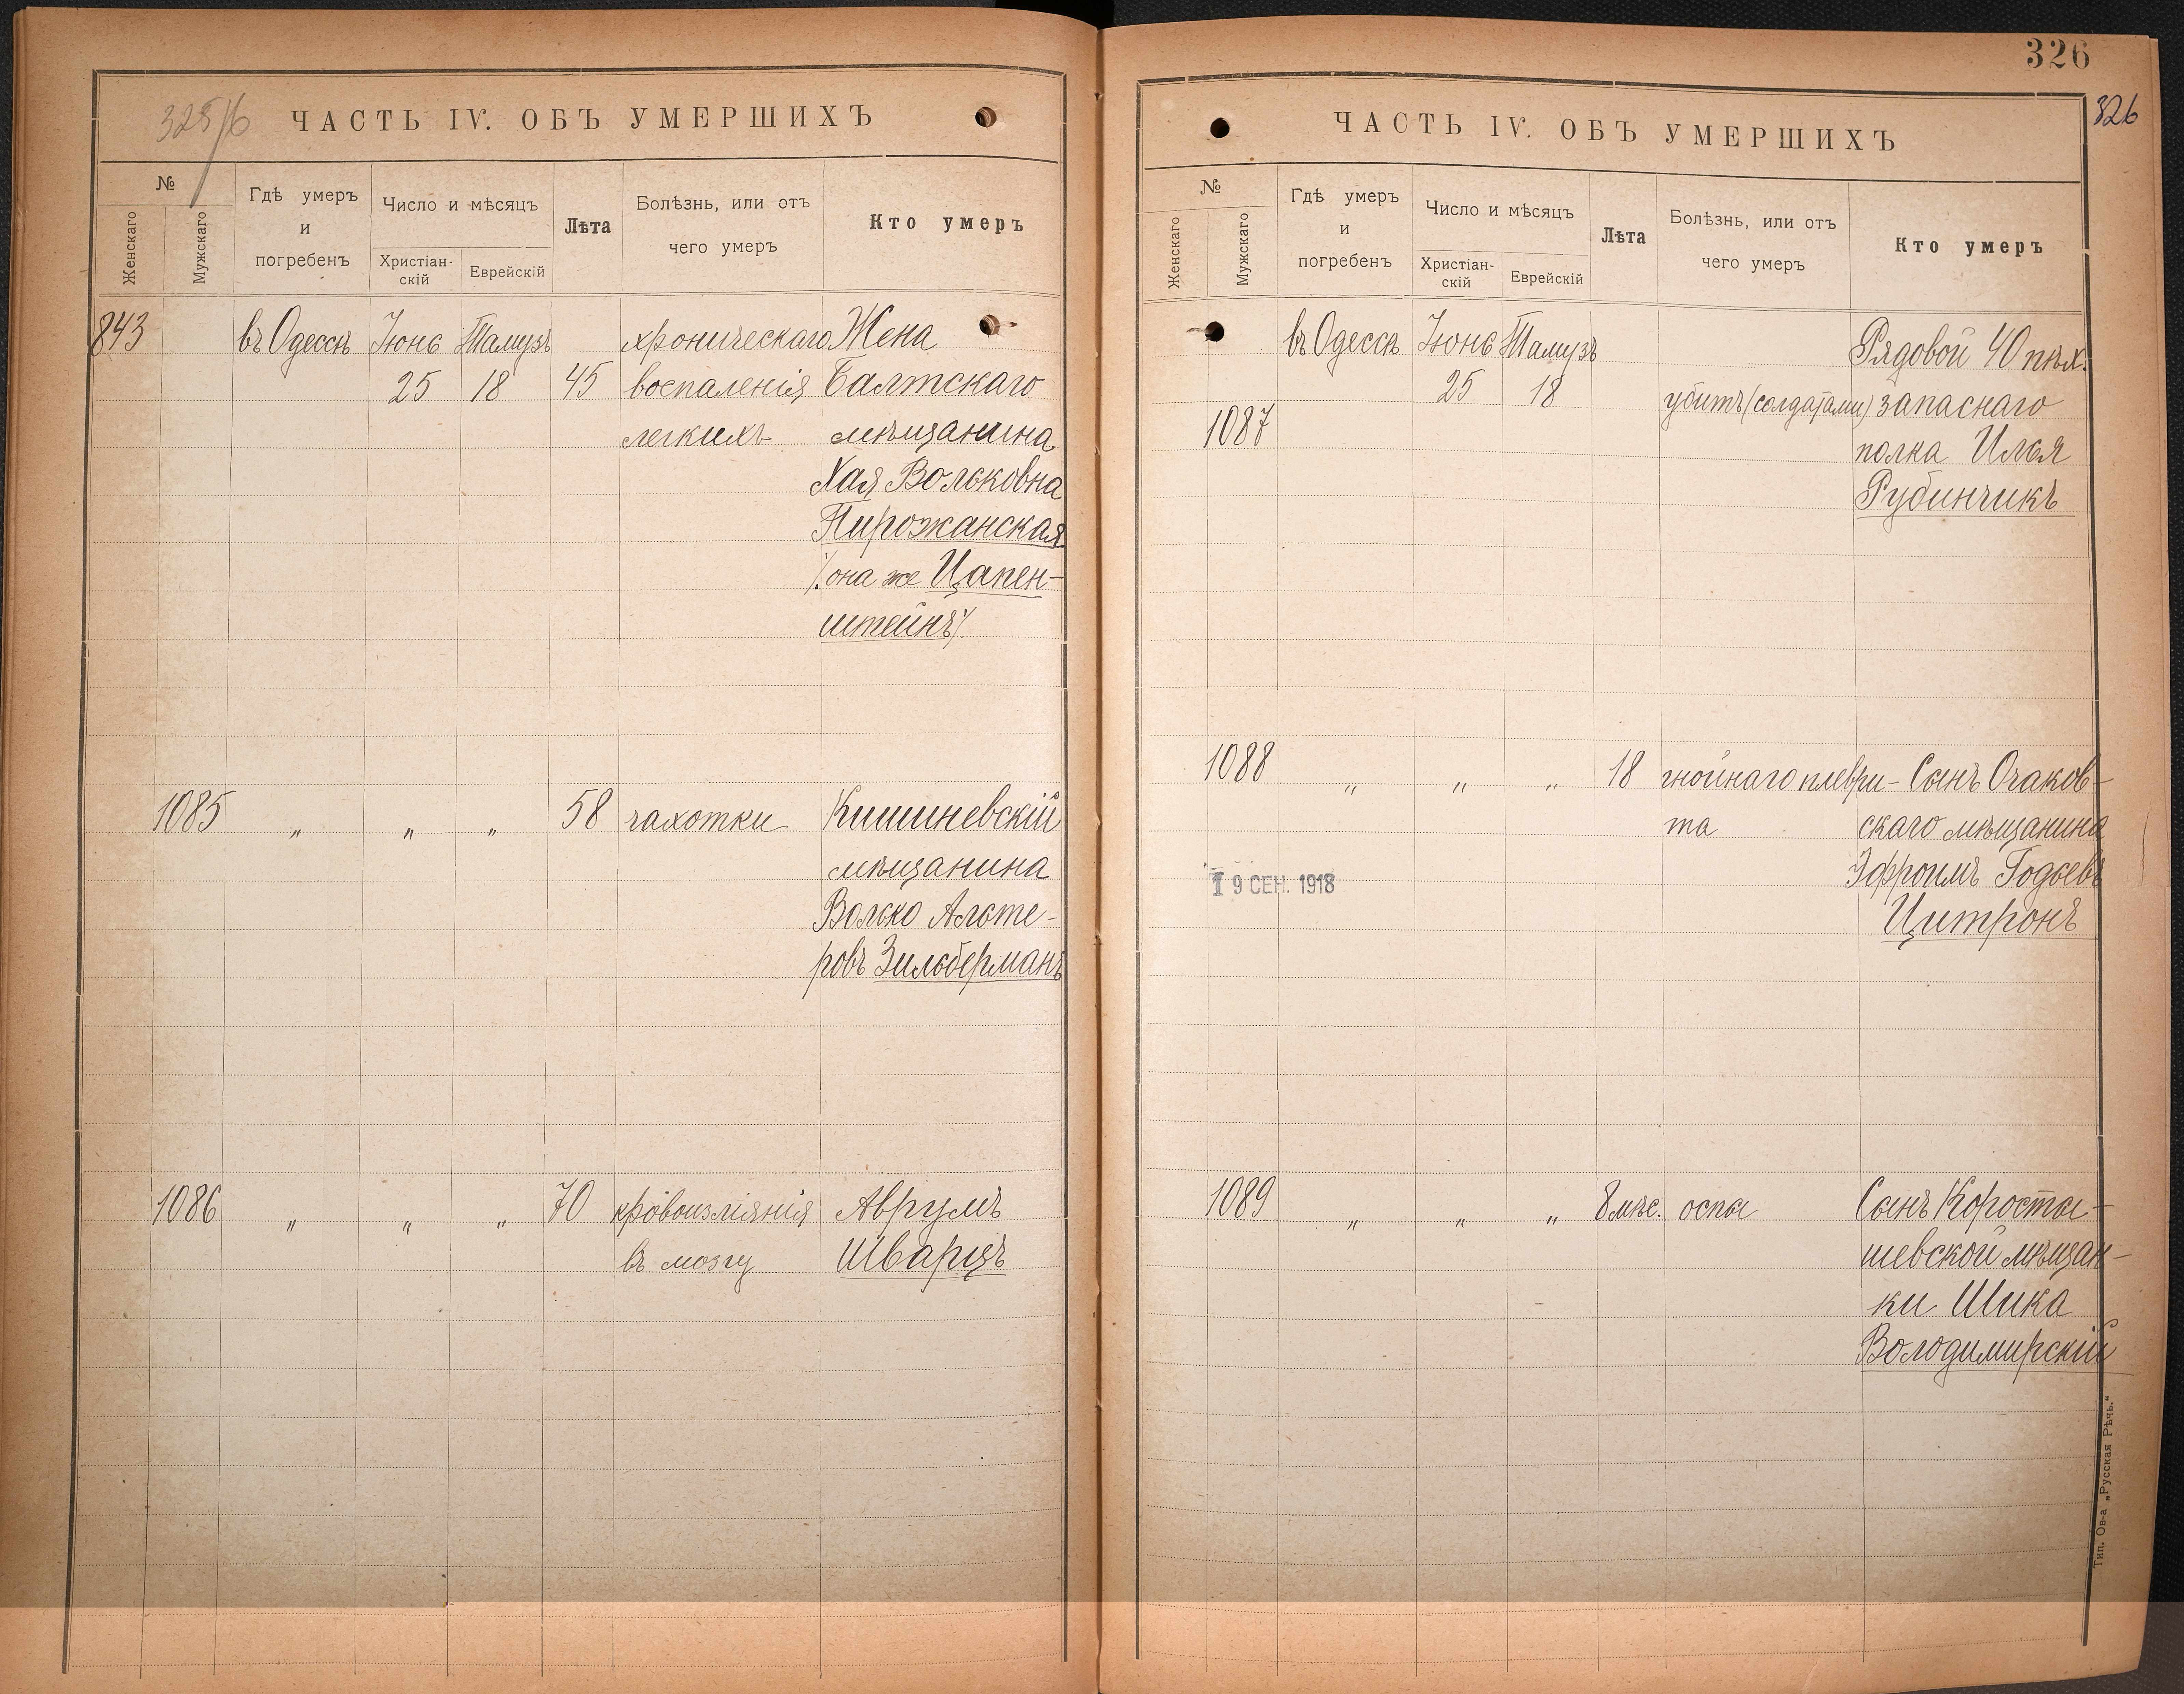 325/6
ЧАСТЬ IV. ОБЪ УМЕРШИХЪ
№
Женскаго
Мужскаго
Гдѣ умеръ
и
погребенъ
Число и мѣсяцъ
Христіан-
скій
Еврейскій
Лѣта
Болѣзнь, или отъ
чего умеръ
Кто умеръ
843 въ Одессѣ Іюнь Тамузъ хроническаго Жена
25 18 45 воспаленія Балтскаго
легкихъ мѣщанина
Хая Вольковна
Пирожанская
/:она же Цапен-
штейнъ/.
1085 „ „ „ 58 чахотки Кишиневскій
мѣщанина
Волько Альте-
ровъ Зильберманъ
1086 „ „ „ 70 кровоизліянія Аврумъ
въ мозгу Шварцъ
326
326
ЧАСТЬ IV. ОБЪ УМЕРШИХЪ
№
Женскаго
Мужскаго
Гдѣ умеръ
и
погребенъ
Число и мѣсяцъ
Христіан-
скій
Еврейскій
Лѣта
Болѣзнь, или отъ
чего умеръ
Кто умеръ
въ Одессѣ Іюнь Тамузъ Рядовой 40 пѣх.
25 18 убитъ (солдатами) запаснаго
1087 полка Илья
Рубинчикъ
1088 „ „ „ 18 гнойнаго плеври- Сынъ Очаков-
та скаго мѣщанина
19 СЕН. 1918 Эфроимъ Годьевъ
Цитронъ
1089 „ „ „ 8 мѣс. оспы Сынъ Коросты-
шевской мѣщан-
ки Шика
Володимирскій
Тип. Ов-а „Русская Рѣчь.“